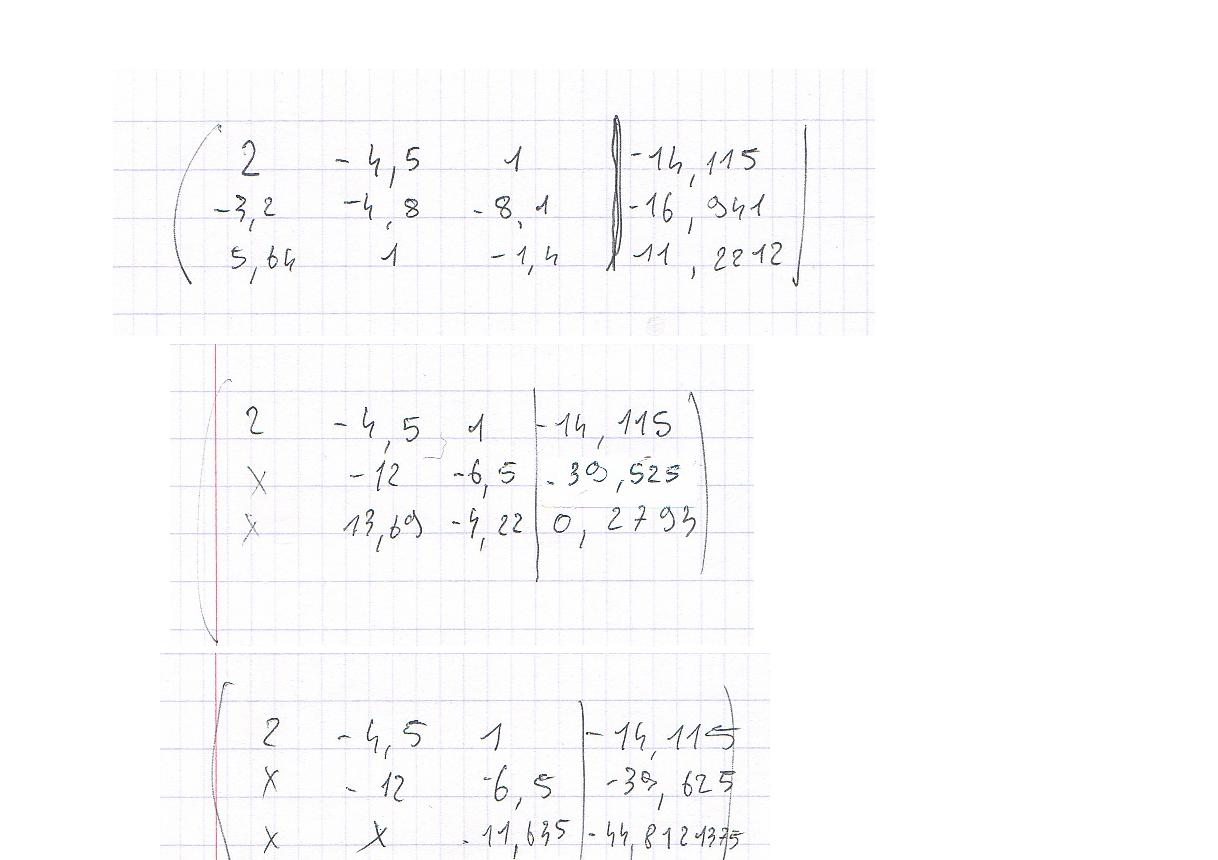 2 -4,5 1 -14,115
-3,2 -4,8 -8,1 -16,941
5,64 1 -1,4 -11,2212
2 -4,5 1 -14,115
X -12 -6,5 -39,525
X 13,69 -4,22 0,2794
2 -4,5 1 -14,115
X -12 -6,5 -39,625
X X -11,635 -44,8121375